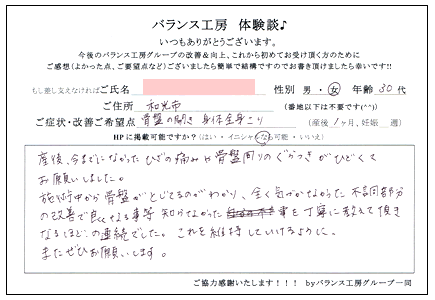 バランス工房 体験談♪
いつもありがとうございます。
今後のバランス工房グループの改善&向上、これから初めてお受け頂く方のために
ご感想(よかった点、ご要望点など)ございましたら簡単で結構ですのでお書き頂けましたら幸いです!!
もし差し支えなければご氏名 性別 男・女 年齢 30代
ご住所 和光市 (番地以下は不要です(^^))
ご症状・改善ご希望点 骨盤の開き 身体全身こり (産後 1ヶ月、妊娠 週)
HPに掲載可能ですか?(はい・イニシャルなら可能・いいえ)
産後、今までになかった ひざの痛みや骨盤周りのぐらつきがひどくて
お願いしました。
施術中から骨盤がとじてるのがわかり、全く気がかなかった 不調部分
の改善で良くなる事等 知らなかった 事を丁寧に教えて頂き
なるほど!の連続でした。これを維持していけるように、
またぜひお願いします。
ご協力感謝いたします!!! byバランス工房グループ一同